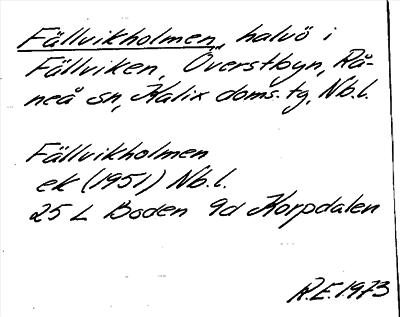 Fällvikholmen, halvö i
Fällviken, Överstbyn, Rå-
neå sn, Kalix doms. tg, Nb. l.
Fällvikholmen
ek (1951) Nb. l.
25 L Boden 9d Korpdalen
R.E. 1973